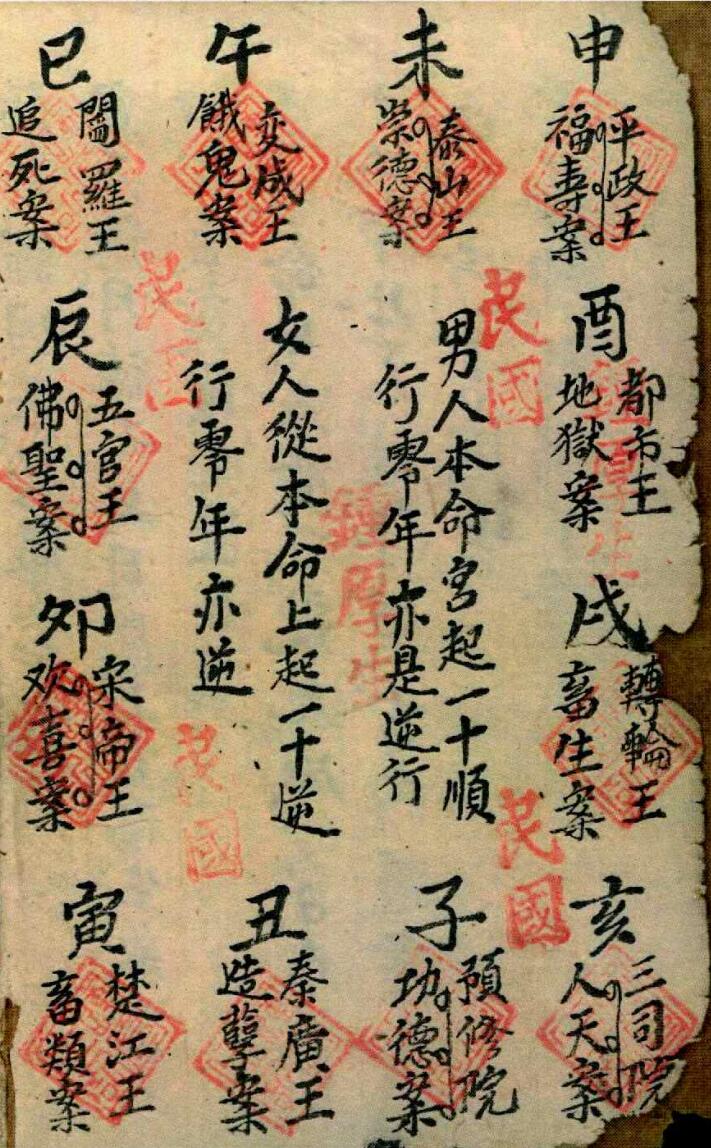 申
平政王
福寿案
未
泰山王
崇德案
午
变成王
餓鬼案
巳
閻羅王
追死案
酉
都市王
地獄案
男人本命宮起一十順
行零年亦是逆行
女人從本命上起一十逆
行零年亦逆
辰
五官王
佛聖案
戌
轉輪王
畜生案
卯
宋帝王
欢喜案
亥
三司院
人天案
子
預修院
功德案
丑
秦廣王
造孽案
寅
楚江王
畜類案
民國
民國
鍾厚生
鍾厚生
民國
民國